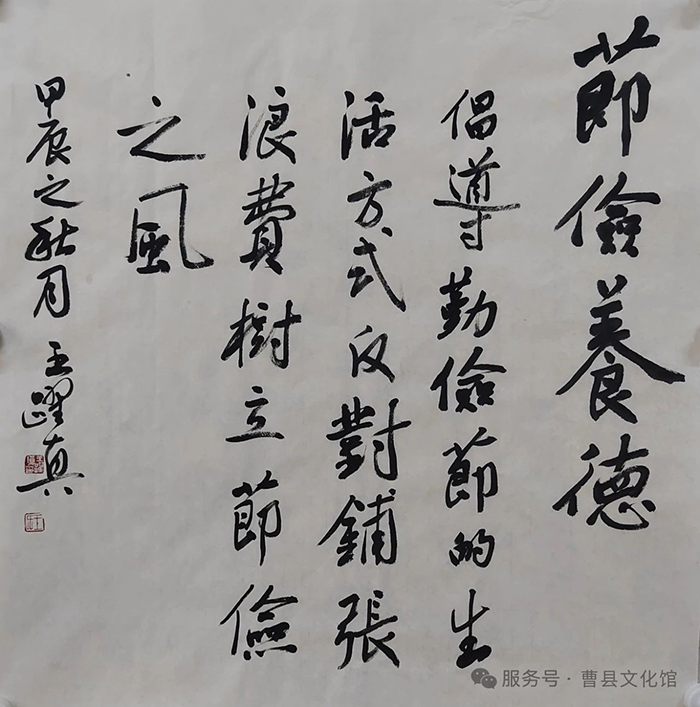 節儉養德
倡導勤儉節的生
活方式反對鋪張
浪費樹立節儉
之風
甲辰之秋月 王躍真
服务号·曹县文化馆